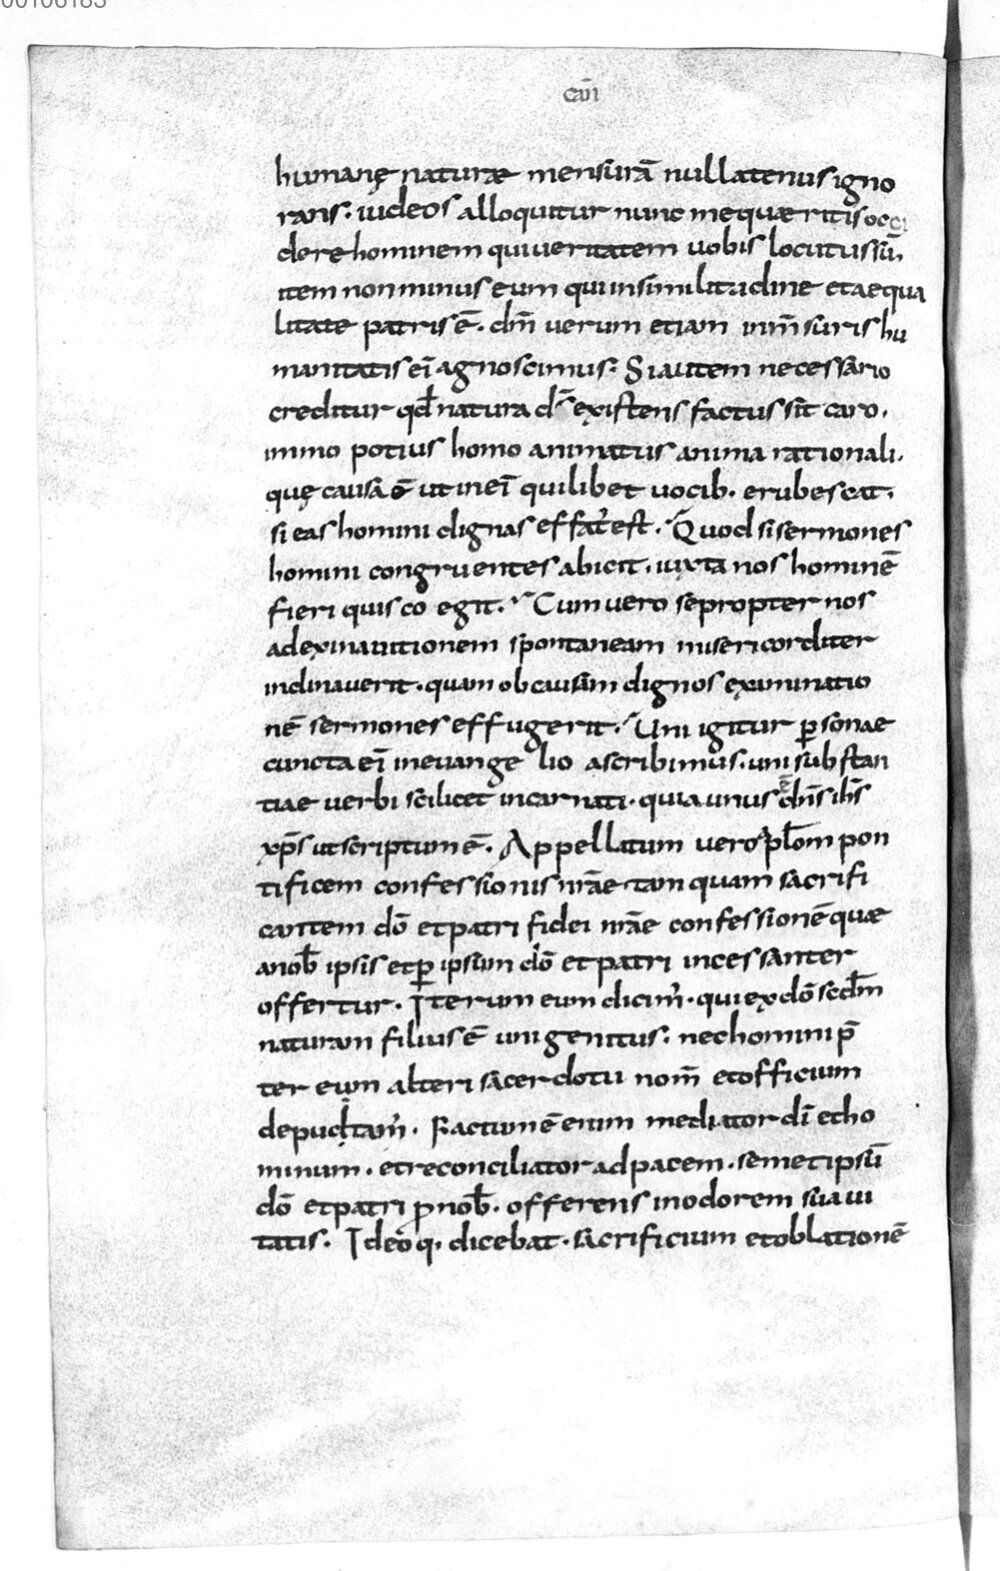 00106183
can̄
humanę naturæ mensurā nullatenus igno
rans. iudeos alloquitur nunc me quæritis occi
dere hominem qui ueritatem uobis locutus sū,
item non minus eum qui in similitudine et aequa
litate patris ē. dm̄ uerum etiam in m̄suris hu
manitatis ei᷎ agnoscimus. Si autem necessario
creditur qđ natura ds̄ existens factus sit caro.
immo potius homo animatus anima rationali.
quę causa ē ut in eī quilibet uocib. erubescat.
si eas homini dignas effat᾽ est. Quod si sermones
homini congruentes abicit. iuxta nos hominē
fieri quis coegit. Cum uero se propter nos
ad exinanitionem spontaneam misericorditer
inclinauerit. quam ob causam dignos exinanitio
nē sermones effugerit. Uni igitur ꝑsonae
cuncta eī in euangelio ascribimus. uni substan
tiae uerbi scilicet incarnati. quia unus ē dn̄s ih̄s
xp̄s ut scriptum ē. Appellatum uero ap̄lom pon
tificem confessionis nr̄ae tam quam sacrifi
cantem dō et patri fidei nr̄ae confessionē quae
a nob̄ ipsis et ꝑ ipsum dō et patri incessanter
offertur. Iterum eum dicim᾽. qui ex dō scd̄m
naturam filius ē unigenitus. nec homini p̄
ter eum alteri sacerdotii nom̄ et officium
deputam᾽. Factum ē enim mediator dī et ho
minum. et reconciliator ad pacem. semetipsū
dō et patri ꝓ nob̄. offerens in odorem suaui
tatis. Ideo q. dicebat. sacrificium et oblationē